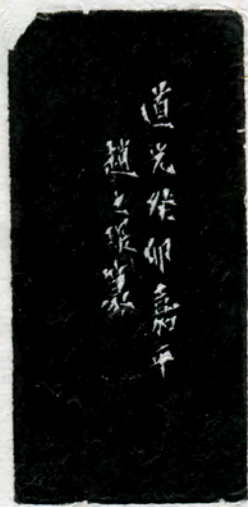 道光癸卯嘉平
趙之琛篆